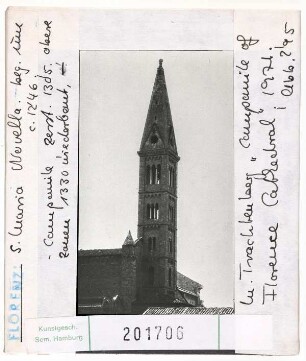 FLORENZ:
S. Maria Novella. beg. um
c. 1246
- Campanile zerst. 13
obere
zonen 1330 wiederbaut,
M. Trachtenberg, "Campanile of
Florence Cathedral", 1971,
Abb. 295
Kunstgesch.
Sem. Hamburg
201706